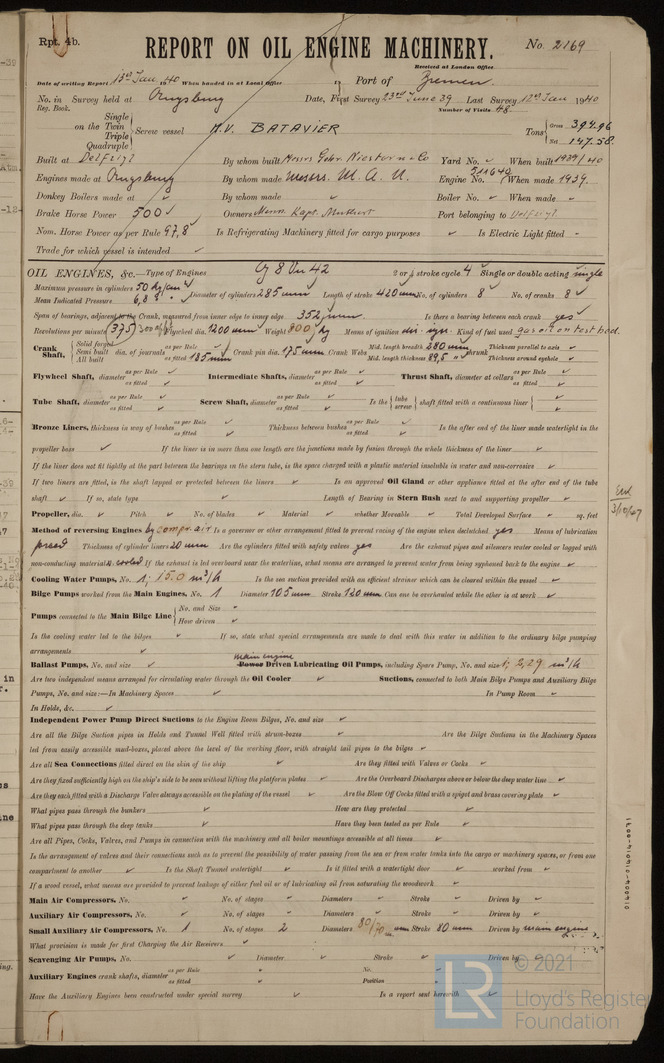 Rpt. 4b.
REPORT ON OIL ENGINE MACHINERY.
No. 2169
Received at London Office
Date of writing Report 13th Jan 1940 When handed in at Local Office Port of Bremen
No. in Survey held at Augsburg Date, First Survey 23rd June 39 Last Survey 12th Jan 1940
Reg. Book. Number of Visits 48
Single
on the Twin Screw vessel M.V. BATAVIER Tons Gross 394.96
Triple Net 147.58
Quadruple
Built at Delfzijl By whom built Messrs Gebr. Niestern & Co Yard No. ✓ When built 1939/40
Engines made at Augsburg By whom made Messrs. M.A.N. Engine No. When made 1939.
Donkey Boilers made at ✓ By whom made ✓ Boiler No. ✓ When made ✓
Brake Horse Power 500 ✓ Owners Port belonging to Delfzijl
Nom. Horse Power as per Rule 97,8 ✓ Is Refrigerating Machinery fitted for cargo purposes ✓ Is Electric Light fitted -
Trade for which vessel is intended ✓
OIL ENGINES, &c. —Type of Engines G 8 Vu 42 2 or 4 stroke cycle 4 Single or double acting single
Maximum pressure in cylinders 50 kg/cm² Diameter of cylinders 285 mm Length of stroke 420 mm No. of cylinders 8 No. of cranks 8 ✓
Mean Indicated Pressure 6,8
Span of bearings, adjacent to the Crank, measured from inner edge to inner edge 352 mm Is there a bearing between each crank yes ✓
Revolutions per minute 375 Flywheel dia. 1200 mm Weight 800 kg Means of ignition Kind of fuel used gas oil on test bed.
Crank Shaft, Solid forged Semi built All built dia. of journals as per Rule ✓ as fitted 185 mm Crank pin dia. 175 mm Crank Webs Mid. length breadth 280 mm Mid. length thickness 89,5 shrunk Thickness parallel to axis ✓ Thickness around eyehole ✓
Flywheel Shaft, diameter as per Rule ✓ as fitted ✓ Intermediate Shafts, diameter as per Rule ✓ as fitted ✓ Thrust Shaft, diameter at collars as per Rule ✓ as fitted ✓
Tube Shaft, diameter as per Rule ✓ as fitted ✓ Screw Shaft, diameter as per Rule ✓ as fitted ✓ Is the tube screw shaft fitted with a continuous liner ✓
Bronze Liners, thickness in way of bushes as per Rule ✓ as fitted ✓ Thickness between bushes as per Rule ✓ as fitted ✓ Is the after end of the liner made watertight in the
propeller boss ✓ If the liner is in more than one length are the junctions made by fusion through the whole thickness of the liner ✓
If the liner does not fit tightly at the part between the bearings in the stern tube, is the space charged with a plastic material insoluble in water and non-corrosive ✓
If two liners are fitted, is the shaft lapped or protected between the liners ✓ Is an approved Oil Gland or other appliance fitted at the after end of the tube
shaft ✓ If so, state type ✓ Length of Bearing in Stern Bush next to and supporting propeller ✓
Propeller, dia. ✓ Pitch ✓ No. of blades ✓ Material ✓ whether Moveable ✓ Total Developed Surface ✓ sq. feet
Method of reversing Engines by compr. air Is a governor or other arrangement fitted to prevent racing of the engine when declutched yes ✓ Means of lubrication
forced Thickness of cylinder liners 20 mm Are the cylinders fitted with safety valves yes Are the exhaust pipes and silencers water cooled or lagged with
non-conducting material w. cooled If the exhaust is led overboard near the waterline, what means are arranged to prevent water being syphoned back to the engine ✓
Cooling Water Pumps, No. 1; 15.0 m³/h Is the sea suction provided with an efficient strainer which can be cleared within the vessel ✓
Bilge Pumps worked from the Main Engines, No. 1 Diameter 105 mm Stroke 120 mm Can one be overhauled while the other is at work ✓
Pumps connected to the Main Bilge Line No. and Size ✓
How driven ✓
Is the cooling water led to the bilges ✓ If so, state what special arrangements are made to deal with this water in addition to the ordinary bilge pumping
arrangements ✓
Ballast Pumps, No. and size ✓ main engine Power Driven Lubricating Oil Pumps, including Spare Pump, No. and size 1; 5,29 m³/h
Are two independent means arranged for circulating water through the Oil Cooler ✓ Suctions, connected to both Main Bilge Pumps and Auxiliary Bilge
Pumps, No. and size:—In Machinery Spaces ✓ In Pump Room ✓
In Holds, &c. ✓
Independent Power Pump Direct Suctions to the Engine Room Bilges, No. and size ✓
Are all the Bilge Suction pipes in Holds and Tunnel Well fitted with strum-boxes ✓ Are the Bilge Suctions in the Machinery Spaces
led from easily accessible mud-boxes, placed above the level of the working floor, with straight tail pipes to the bilges ✓
Are all Sea Connections fitted direct on the skin of the ship ✓ Are they fitted with Valves or Cocks ✓
Are they fixed sufficiently high on the ship's side to be seen without lifting the platform plates ✓ Are the Overboard Discharges above or below the deep water line ✓
Are they each fitted with a Discharge Valve always accessible on the plating of the vessel ✓ Are the Blow Off Cocks fitted with a spigot and brass covering plate ✓
What pipes pass through the bunkers ✓ How are they protected ✓
What pipes pass through the deep tanks ✓ Have they been tested as per Rule ✓
Are all Pipes, Cocks, Valves, and Pumps in connection with the machinery and all boiler mountings accessible at all times ✓
Is the arrangement of valves and their connections such as to prevent the possibility of water passing from the sea or from water tanks into the cargo or machinery spaces, or from one
compartment to another ✓ Is the Shaft Tunnel watertight ✓ Is it fitted with a watertight door ✓ worked from ✓
If a wood vessel, what means are provided to prevent leakage of either fuel oil or lubricating oil from saturating the woodwork ✓
Main Air Compressors, No. ✓ No. of stages ✓ Diameters ✓ Stroke ✓ Driven by ✓
Auxiliary Air Compressors, No. ✓ No. of stages ✓ Diameters ✓ Stroke ✓ Driven by ✓
Small Auxiliary Air Compressors, No. 1 No. of stages 2 Diameters 80/70 mm Stroke 80 mm Driven by main engine
What provision is made for first Charging the Air Receivers ✓
Scavenging Air Pumps, No. ✓ Diameter ✓ Stroke ✓ Driven by ✓
Auxiliary Engines crank shafts, diameter as per Rule ✓ as fitted ✓ No. ✓ Position ✓
Have the Auxiliary Engines been constructed under special survey ✓ Is a report sent herewith ✓
3/10/47
LR
© 2021
Lloyd's Register
Foundation